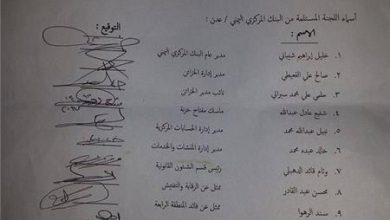 أسماء اللجنة المستلمة من البنك المركزي اليمني / عدن :
الاسم : التوقيع :
١. خليل إبراهيم شيباني مدير عام البنك المركزي اليمني
٢. صالح علي القعيطي مدير إدارة الخزائن
٣. حلمي علي محمد نائب مدير الخزائن
٤. شفيع عادل عبدالله ماسك مفتاح خزنة
٥. نبيل عبدالله محمد مدير إدارة الحسابات المركزية
٦. خالد عبده محمد مدير إدارة المنشآت والخدمات
٧. وئام قائد رئيس قسم الشئون القانونية
٨. محسن عبد القادر ممثل عن الرقابة والتفتيش
٩. سند الرهوا ممثل عن قائد المنطقة الرابعة